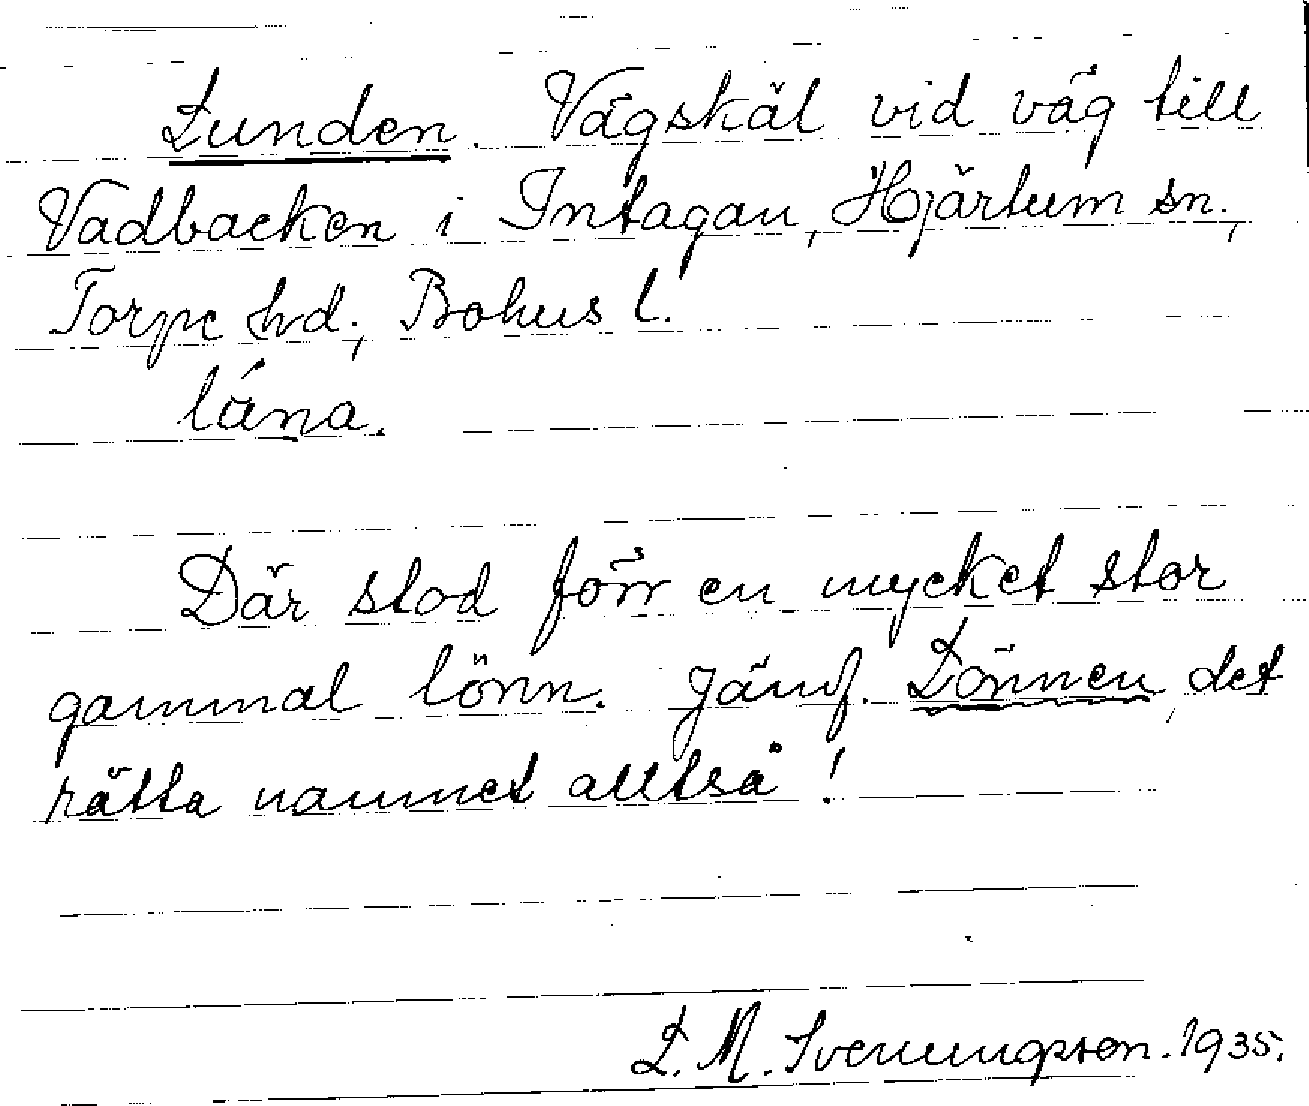 Lunden. Vägskäl vid väg till
Vadbacken i Intagan, Hjärtum sn.,
Torpe hd., Bohus l.
låna.
Där stod förr en mycket stor
gammal lönn. Jämf. Lönnen, det
rätta namnet alltså!
L. M. Svenungsson. 1935.